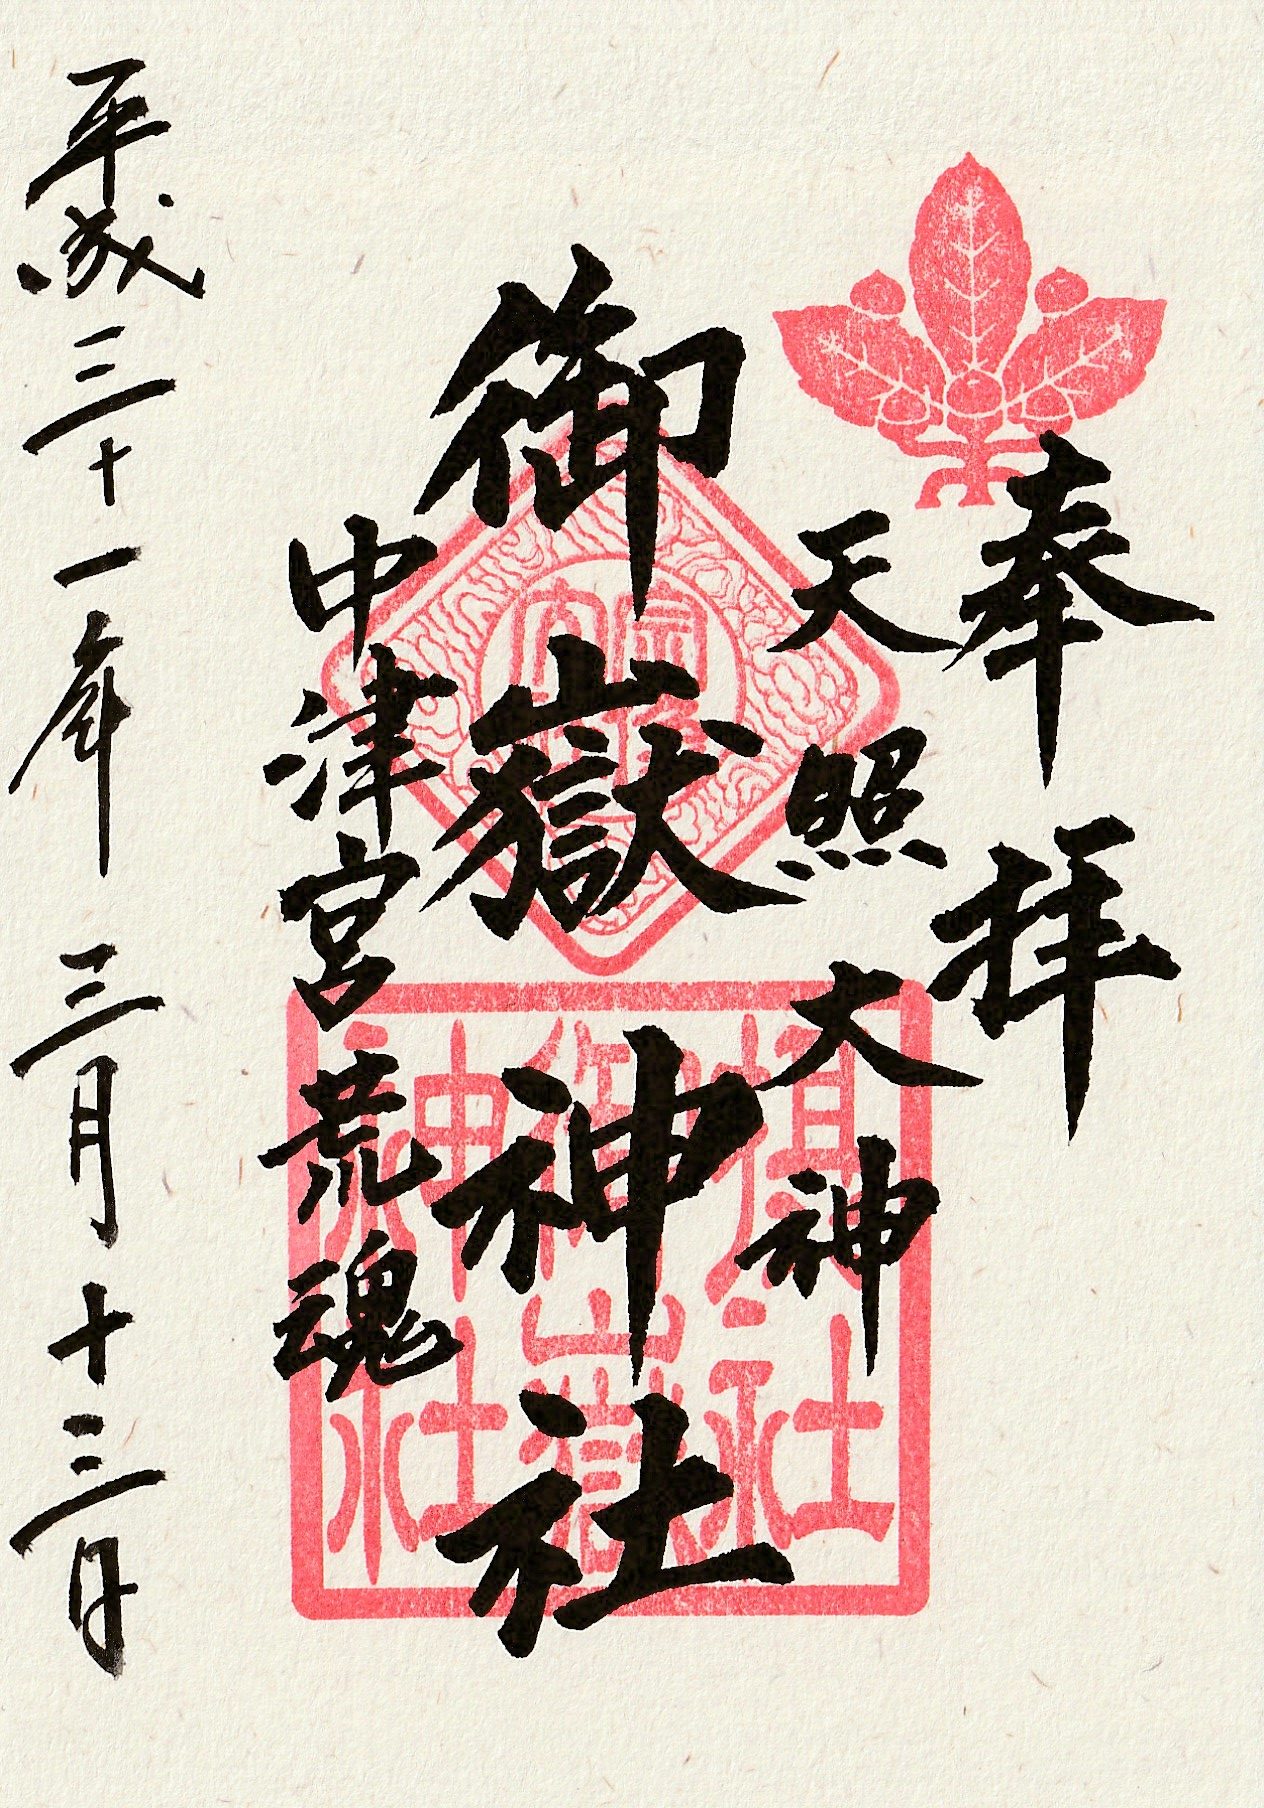 奉拝
天照大神
御嶽神社
中津宮荒魂
平成三十一年 三月十三日
社
御嶽
神社